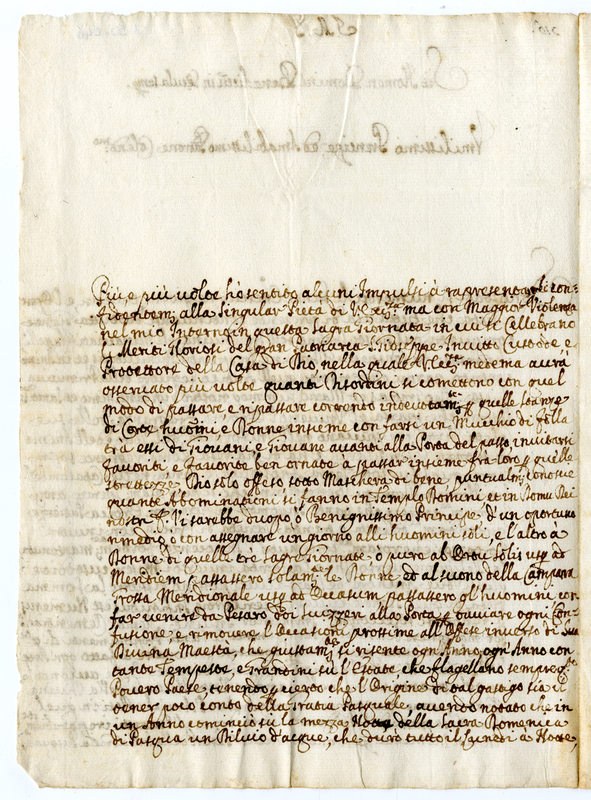 Più, e più volte hò sentito alcuni Impulsi à rapresentar si con-
fidentem: alla Singular Pietà di V. Ecc:za ma con Maggior Violenza
nel mio Interno in questa Sagra Giornata in cui si Cellebrano
i Meriti Gloriosi del gran Patriarca S. Gioseppe Invitto Custode e
Protettore della Casa di Dio, nella quale V. Ecc:za medema avrà
osservato più volte quanti Disordini si comettono con quel
modo di passare e ripassare correndo indevotam:te p quelle
di huomini, e Donne insieme con farsi un Mucchio di folla
trà essi di Giovani, e Giovane avanti alla Porta del passo, invitarsi
favoriti, e favorite ben ornate à passar insieme frà loro p quelle
strettezze. Dio solo offeso sotto Maschera di bene, puntualm: conosce
quante Abominazioni si fanno in Templo Domini et in Domu Dei
nostri. Vi sarebbe duopo ò Benignissimo Principe d'un oportuno
rimedio, ò con assegnare un giorno alli huomini soli, e l'altro à
Donne di quelli tre Sagre Giornate, ò pure al usq ad
Meridiem passassero solam:te le Donne, ed al suono della Campana
Grossa Meridionale usq ad Occasum passassero gl'huomini con
far venire da Pesaro doi Suizzeri alla Porta p ovviare ogni Con-
fusione, e rimovere l'Occasioni prossime all'Offese inverso di Sua
Divina Maestà, che giustam:te si risente ogni Anno, ogni Anno con
tante Tempeste, e Grandini sù l'Estate che flagellano sempre q:to
Povero Paese, tenendo p certo che l'Origine di tal gastigo sia il
tener poco conto della Grazia Pasquale, avendo notato che in
un Anno cominciò sù la mezza Notte della Sacra Domenica
di Pasqua un Diluvio d'acque, che durò tutto il Lunedì à Notte,